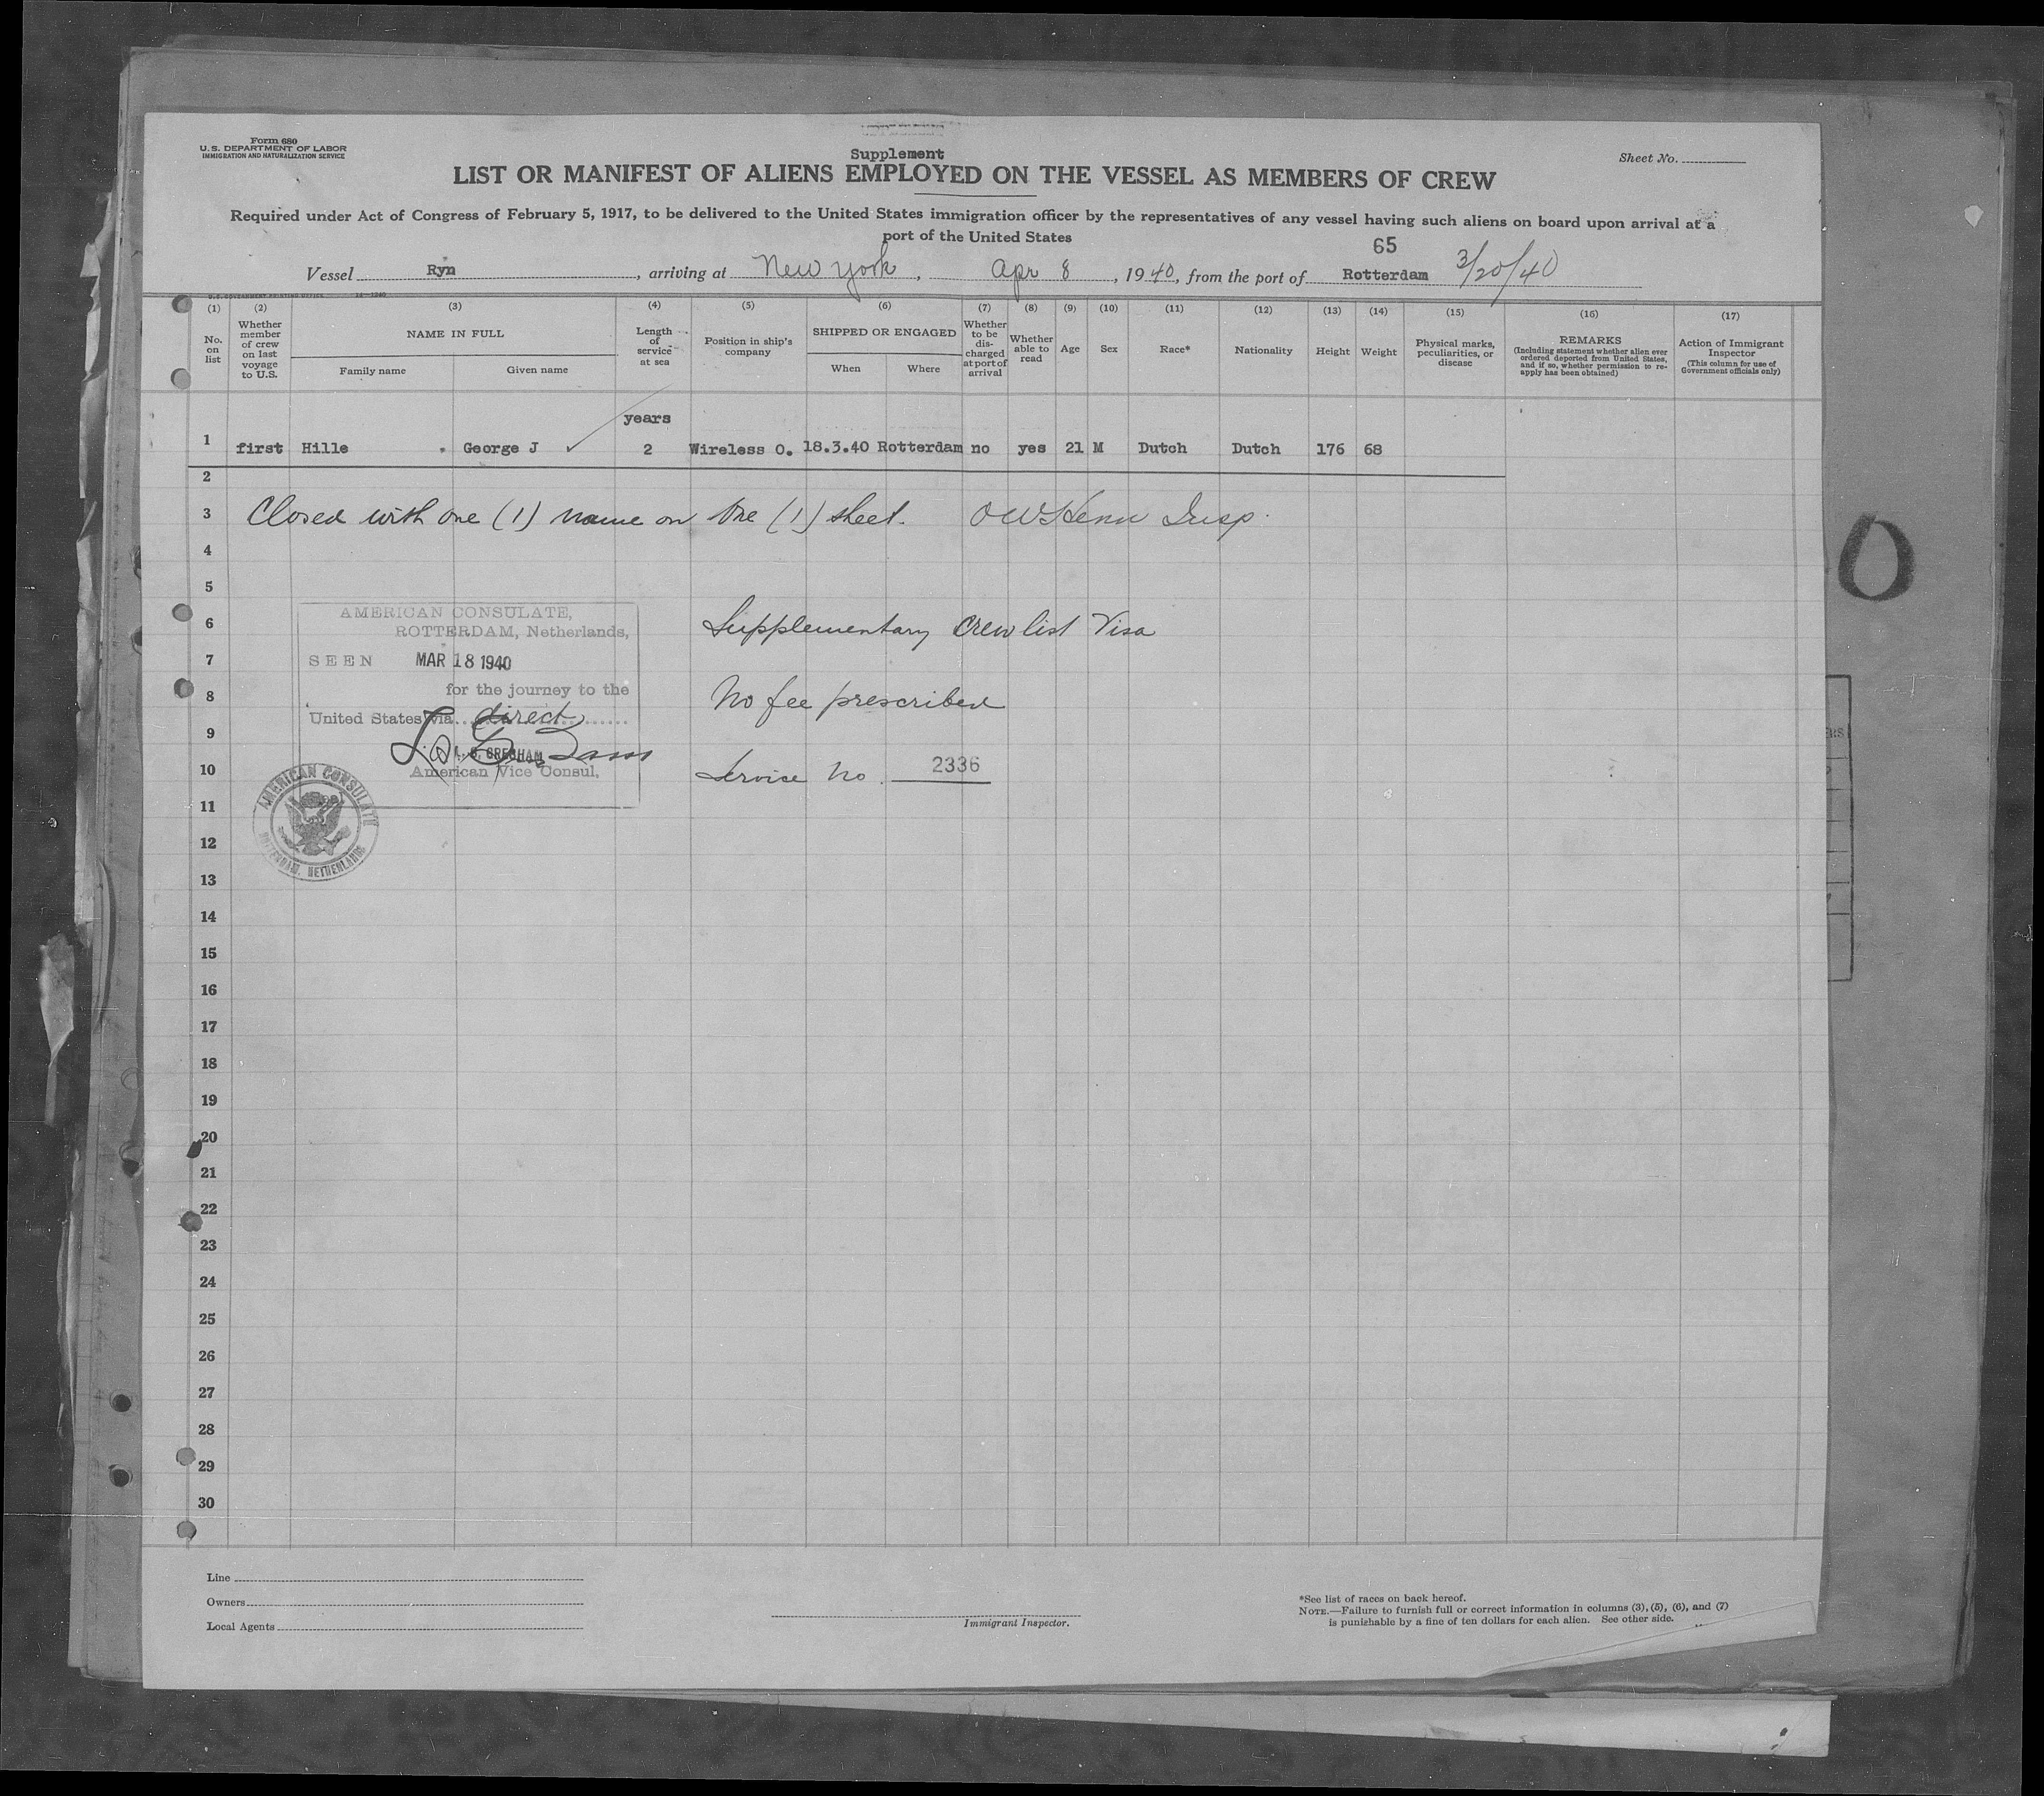 Form 680
U. S. DEPARTMENT OF LABOR
IMMIGRATION AND NATURALIZATION SERVICE
Supplement
Sheet No.
LIST OR MANIFEST OF ALIENS EMPLOYED ON THE VESSEL AS MEMBERS OF CREW
Required under Act of Congress of February 5, 1917, to be delivered to the United States immigration officer by the representatives of any vessel having such aliens on board upon arrival at a
port of the United States
65
Vessel Ryn, arriving at New York, Apr 8, 1940, from the port of Rotterdam 3/20/40
U.S. GOVERNMENT PRINTING OFFICE
(1) (2) (3) (4) (5) (6) (7) (8) (9) (10) (11) (12) (13) (14) (15) (16) (17)
No. on list
Whether member of crew on last voyage to U.S.
NAME IN FULL
Family name
Given name
Length of service at sea
Position in ship's company
SHIPPED OR ENGAGED
When
Where
Whether to be discharged at port of arrival
Whether able to read
Age
Sex
Race*
Nationality
Height
Weight
Physical marks, peculiarities, or disease
REMARKS
(Including statement whether alien ever ordered deported from United States, and if so, whether permission to reapply has been obtained)
Action of Immigrant Inspector
(This column for use of Government officials only)
years
1 first Hille George J 2 Wireless O. 18.3.40 Rotterdam no yes 21 M Dutch Dutch 176 68
2
3 Closed with one (1) name on one (1) sheet. Insp.
4
5
AMERICAN CONSULATE,
ROTTERDAM, Netherlands,
6 Supplementary Crew list Visa
7 SEEN MAR 18 1940
for the journey to the
8 No fee prescribed
United States via direct
9
American Vice Consul,
10 Service No. 2336
AMERICAN CONSULATE
ROTTERDAM, NETHERLANDS
11
12
13
14
15
16
17
18
19
20
21
22
23
24
25
26
27
28
29
30
Line
Owners
Local Agents
Immigrant Inspector.
*See list of races on back hereof.
NOTE.—Failure to furnish full or correct information in columns (3), (5), (6), and (7)
is punishable by a fine of ten dollars for each alien. See other side.
0